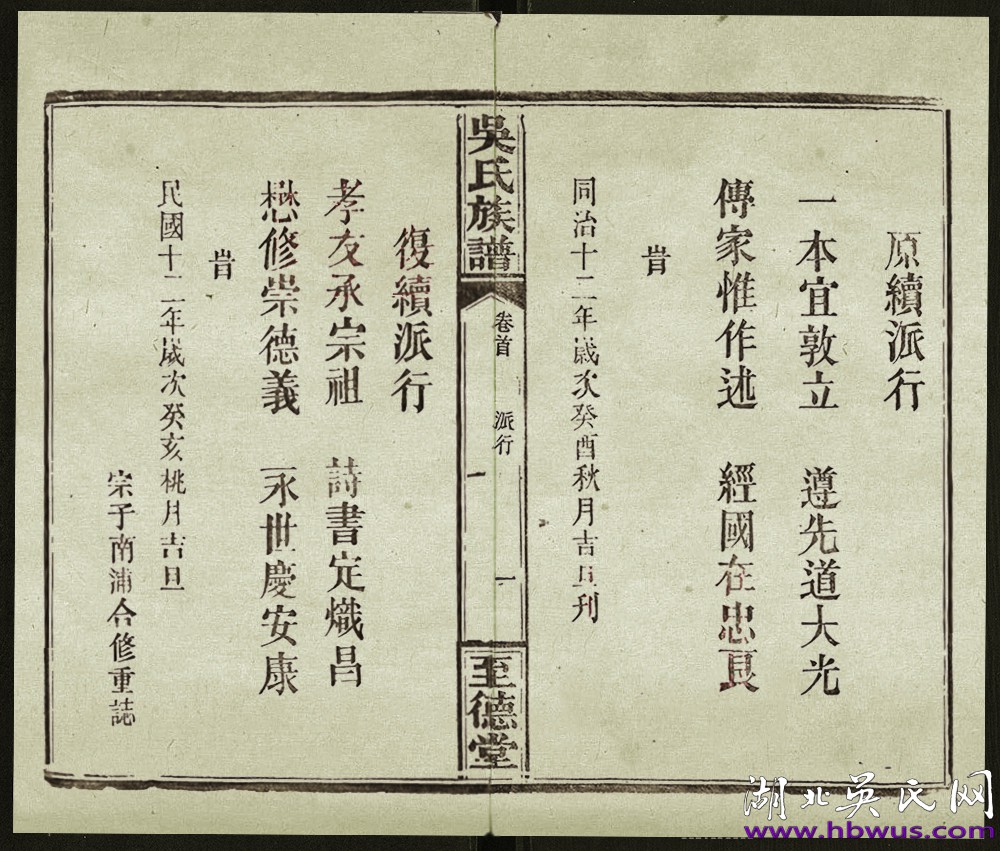 原續派行
一本宜敦立 遵先道大光
傳家惟作述 經國在忠良
旹
同治十二年歲次癸酉秋月吉旦刋
吳氏族譜
卷首
派行
一
至德堂
復續派行
孝友承宗祖 詩書定熾昌
懋修崇德義 永世慶安康
旹
民國十二年歲次癸亥桃月吉旦
宗子南浦合修重誌
湖北吳氏网
www.hbwus.com